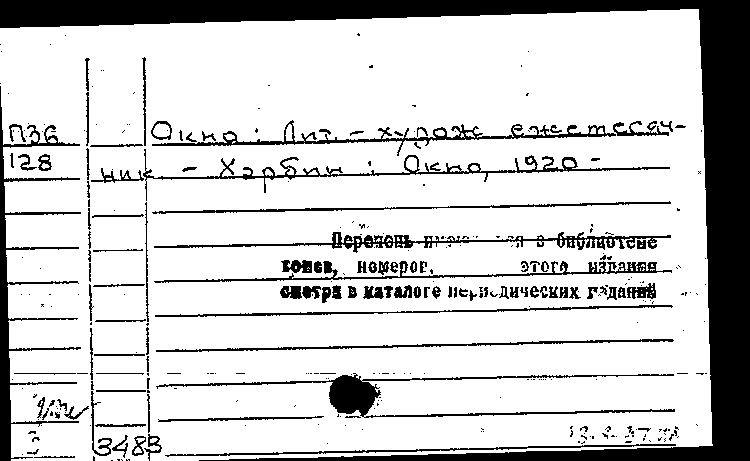 П36 Окно : Лит. - худож ежемесяч-
128 ник - Харбин : Окно, 1920 -
Перечень в библиотеке
томов, номеров, этого издания
смотри в каталоге периодических изданий
3483